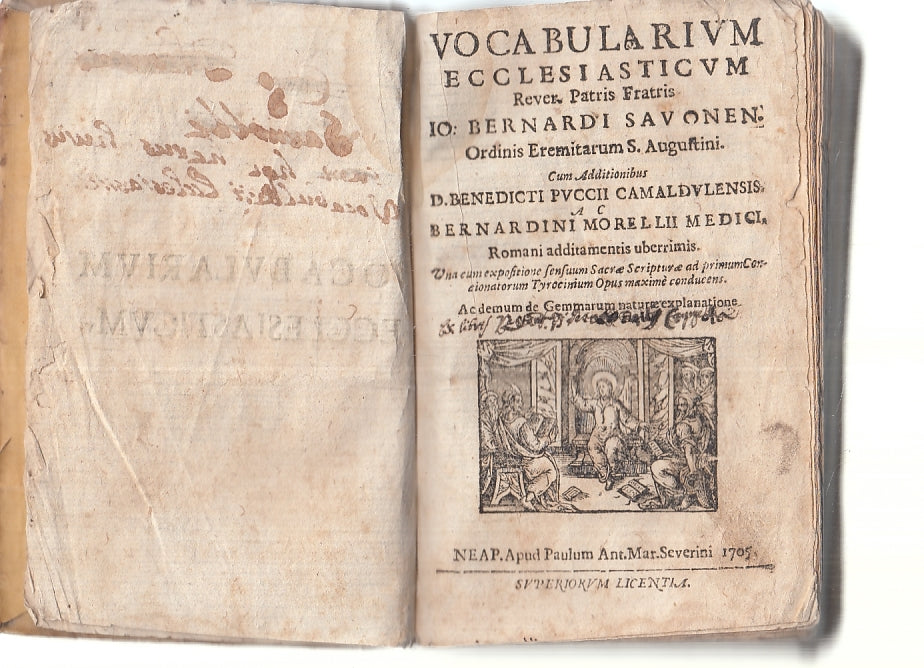 VOCABULARIVM
ECCLESIASTICVM
Rever. Patris Fratris
IO: BERNARDI SAVONEN:
Ordinis Eremitarum S. Augustini.
Cum Additionibus
D. BENEDICTI PVCCII CAMALDVLENSIS.
A C
BERNARDINI MORELLII MEDICI,
Romani additamentis uberrimis.
Vna cum expositione sensuum Sacræ Scripturæ ad primum Con-
cionatorum Tyrocinium Opus maximè conducens.
Ac demum de Gemmarum naturæ explanatione
Ex libris
NEAP. Apud Paulum Ant. Mar. Severini 1705.
SVPERIORVM LICENTIA.